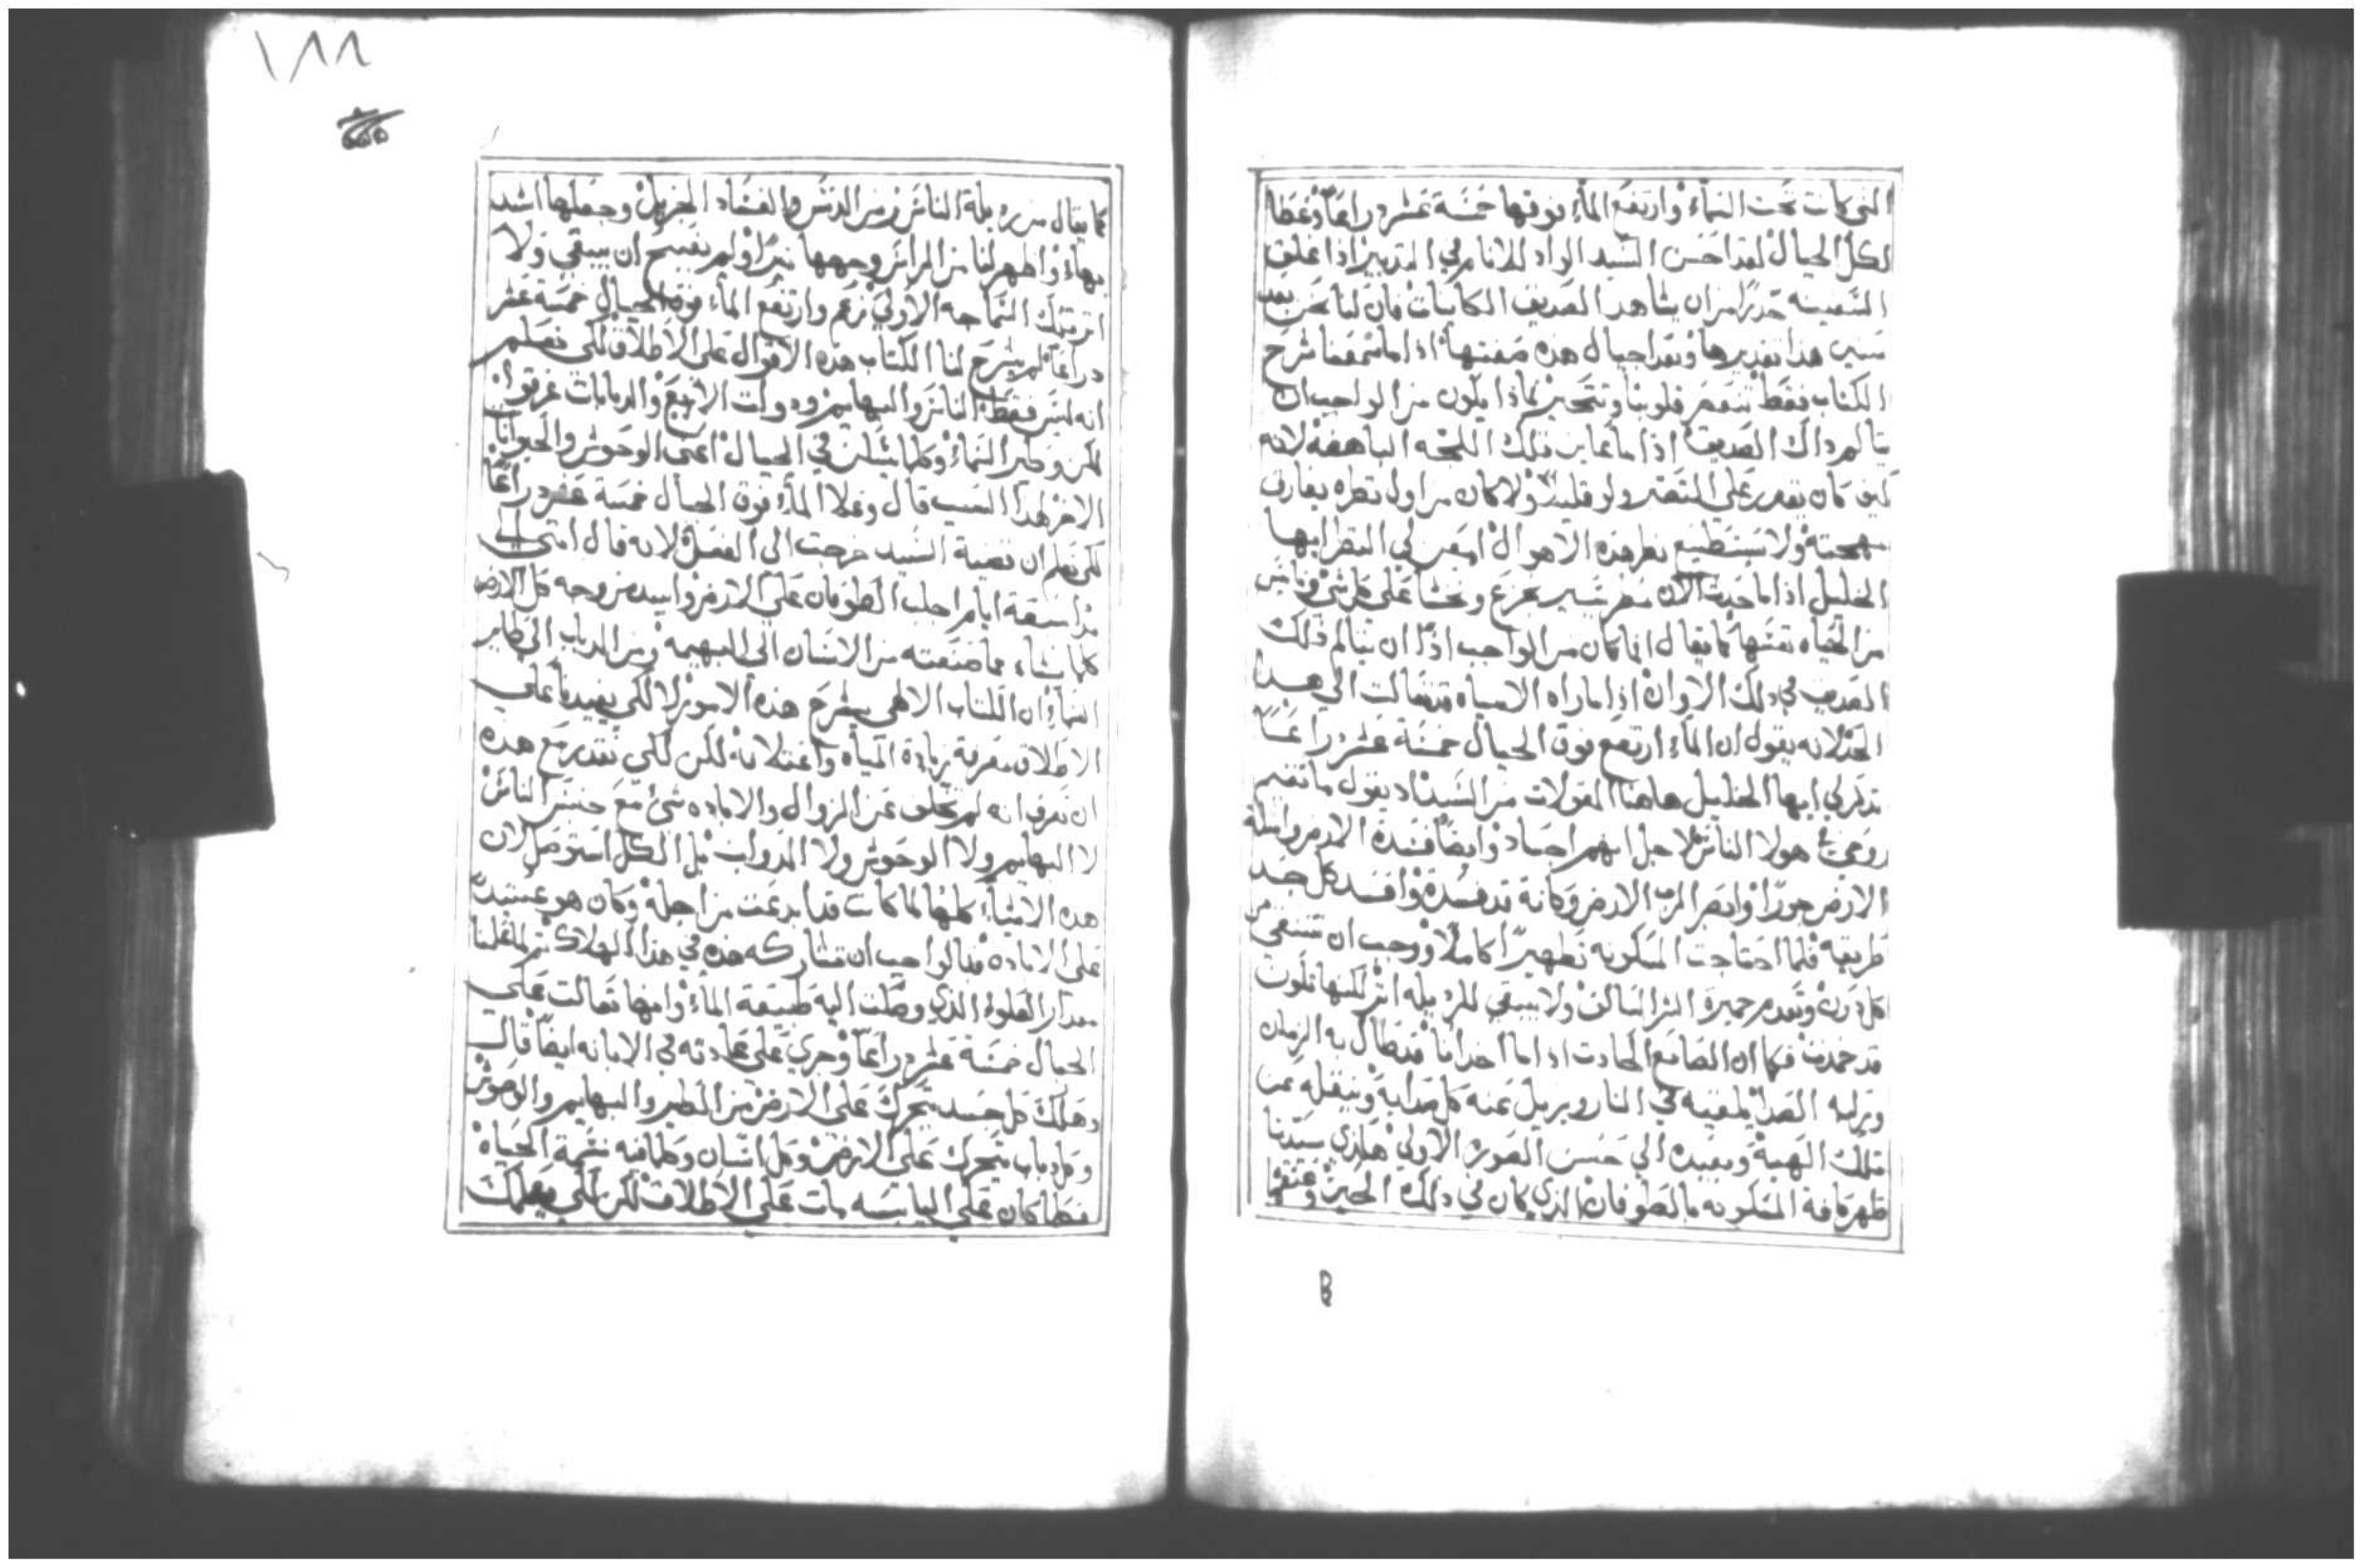 التي كانت تحت السماء وارتفع الماء فوقها خمسة عشر دراعاً وغطا
لكل الجبال لقد احسن السيد الواد للانام في التدبير اذا غلق
السفينه حذرًا من ان يشاهد الصديق الكاينات فان لنا نحن بعد
سنين هذا تقديرها وبعد اجيال هذه صفتها اذا ما سمعنا شرح
الكتاب فقط تنغمر قلوبنا ونتحير فماذا يكون من الواجب ان
يتالم داك الصديق اذا ما عاين تلك اللجه الباهضة لانه
كيف كان يقدر علي التصبر ولو قليلاً ولا كان من اول نظره يفارق
مهجته ولا يستطيع نظر هذه الاهوال امعن لي النظر ايها
الخليل اذا ما حدث الان مطر يسير نجزع ونخشا علي كل شي ونايس
من الحياه نفسها كما يقال انما كان من الواجب اذًا ان يتالم ذلك
الصديق في ذلك الاوان اذا ما راه الامياه قد تعالت الي هذا
الحد لانه يقول ان الماء ارتفع فوق الجبال خمسة عشر دراعاً
تدكر لي ايها الخليل هاهنا المقولات من السيد اذ يقول ما تقيم
روحي في هولا الناس لاجل انهم اجساد وايضاً فسدة الارض وامتلة
الارض جورًا وابصر الرب الارض وكانة قد فسدة وافسد كل جسد
طريقه فلما احتاجت المسكونه تطهيرًا كاملًا ووجب ان تتنقي من
كل درن وتعدم خميرة الشر السالف ولا يبقي للرديله اثر لكيما تكون
قد خمدت فكما ان الصانع الحادق اذا ما اخد انا قد طال به الزمان
وتركه الصدا يلقيه في النار ويزيل عنه كل صدايه وينقله عن
تلك الهية ويعيده الي حسن الصورة الاولي هكذي سيدنا
طهر كافة المسكونه بالطوفان الذي كان في ذلك الحين وعتق
كما يقال من رديلة الناس ومن الدنس والفساد الجزيل وجعلها اشد
بهاء واظهر لنا من المراير وجهها نيرًا ولم يفسح ان يبقي ولا
اثر لتلك السماجه الاولي زعم وارتفع الماء فوق الجبال خمسة عشر
دراعاً لم يشرح لنا الكتاب هذه الاقوال علي الاطلاق لكي نعلم
انه ليس فقط الناس والبهايم ودوات الاربع والدبابات غرقوا
لكن وطير السماء وكلما يسكن في الجبال اعني الوحوش والحيوانات
الاخر لهذا السبب قال وعلا الماء فوق الجبال خمسة عشر دراعاً
لكي نعلم ان قضية السيد خرجت الي الفعل لانه قال امتي الي
مدا سبعة ايام اجلب الطوفان علي الارض وابيد من وجه كل الارض
كلما نشاء مما صنعته من الانسان الي البهيمة ومن الدباب الي طاير
السماء ان الكتاب الالاهي يشرح هذه الامور لا لكي يفيدنا علي
الاطلاق معرفة زيادة المياه واعتلانه لكن لكي نقدر مع هذه
ان نعرف انه لم يتخلف عن الزوال والاباده شي مع جنس الناس
لا البهايم ولا الوحوش ولا الدواب بل الكل استوصل لان
هذه الاشياء كلها لما كانت قد ابدعت من اجله وكان هو عتيدًا
علي الابادة فبالواجب ان تشاركه هذه في هذا الهلاك ثم لما علمنا
مقدار العلوه الذي وصلت اليه طبيعة الماء وانها تعالت علي
الجبال خمسة عشر دراعاً وجري علي عادته في الابانه ايضاً قال
وهلك كل جسد يتحرك علي الارض من الطير والبهايم والوحوش
وكل دباب يتحرك علي الارض وكل انسان وكلما فيه نسمة الحياة
وكلما كان علي اليابسه مات علي الاطلاق لكن لكي يعلمك